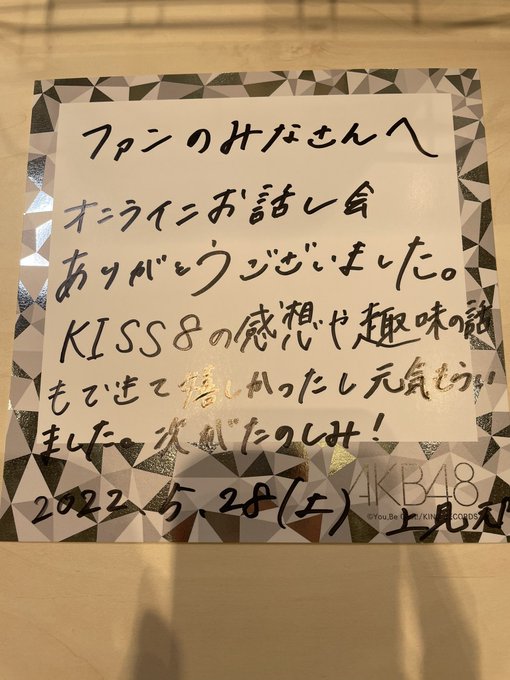 ファンのみなさんへ
オンラインお話し会
ありがとうございました。
KISS8の感想や趣味の話
もできて嬉しかったし元気もらい
ました。次がたのしみ!
AKB48
©You,Be Cool!/KING RECORDS
2022.5.28(土)